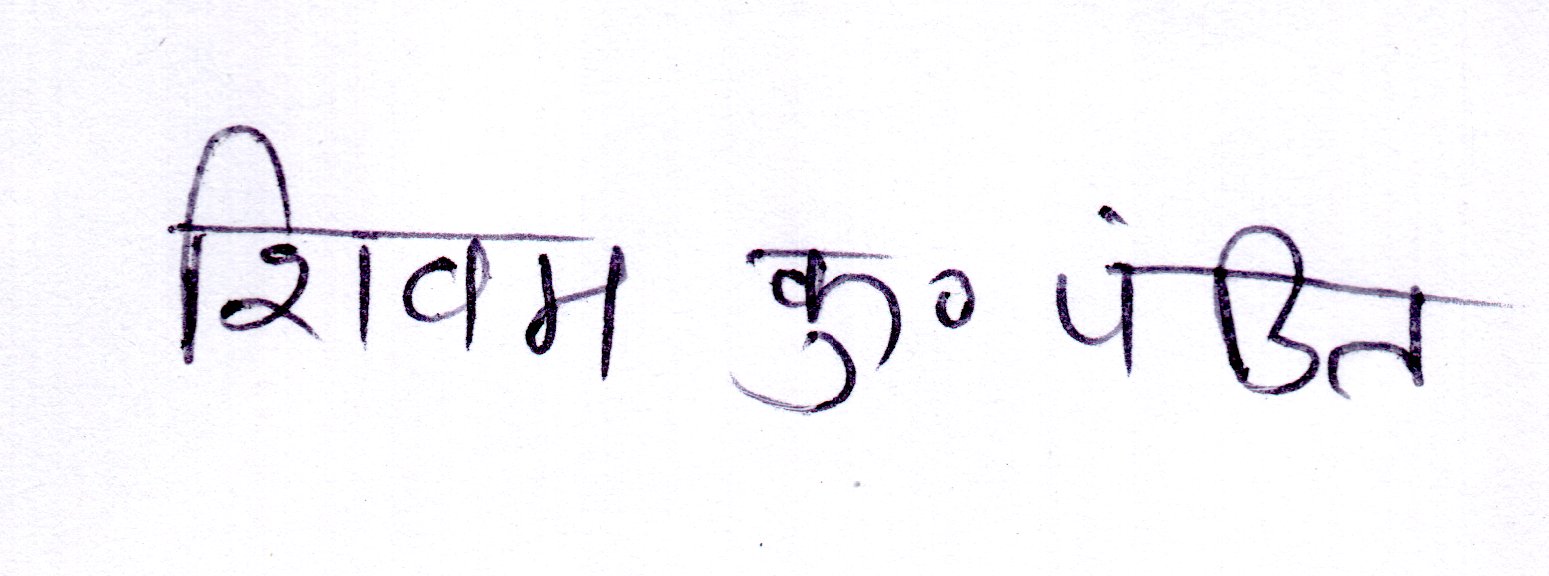 शिवम कु० पंडित